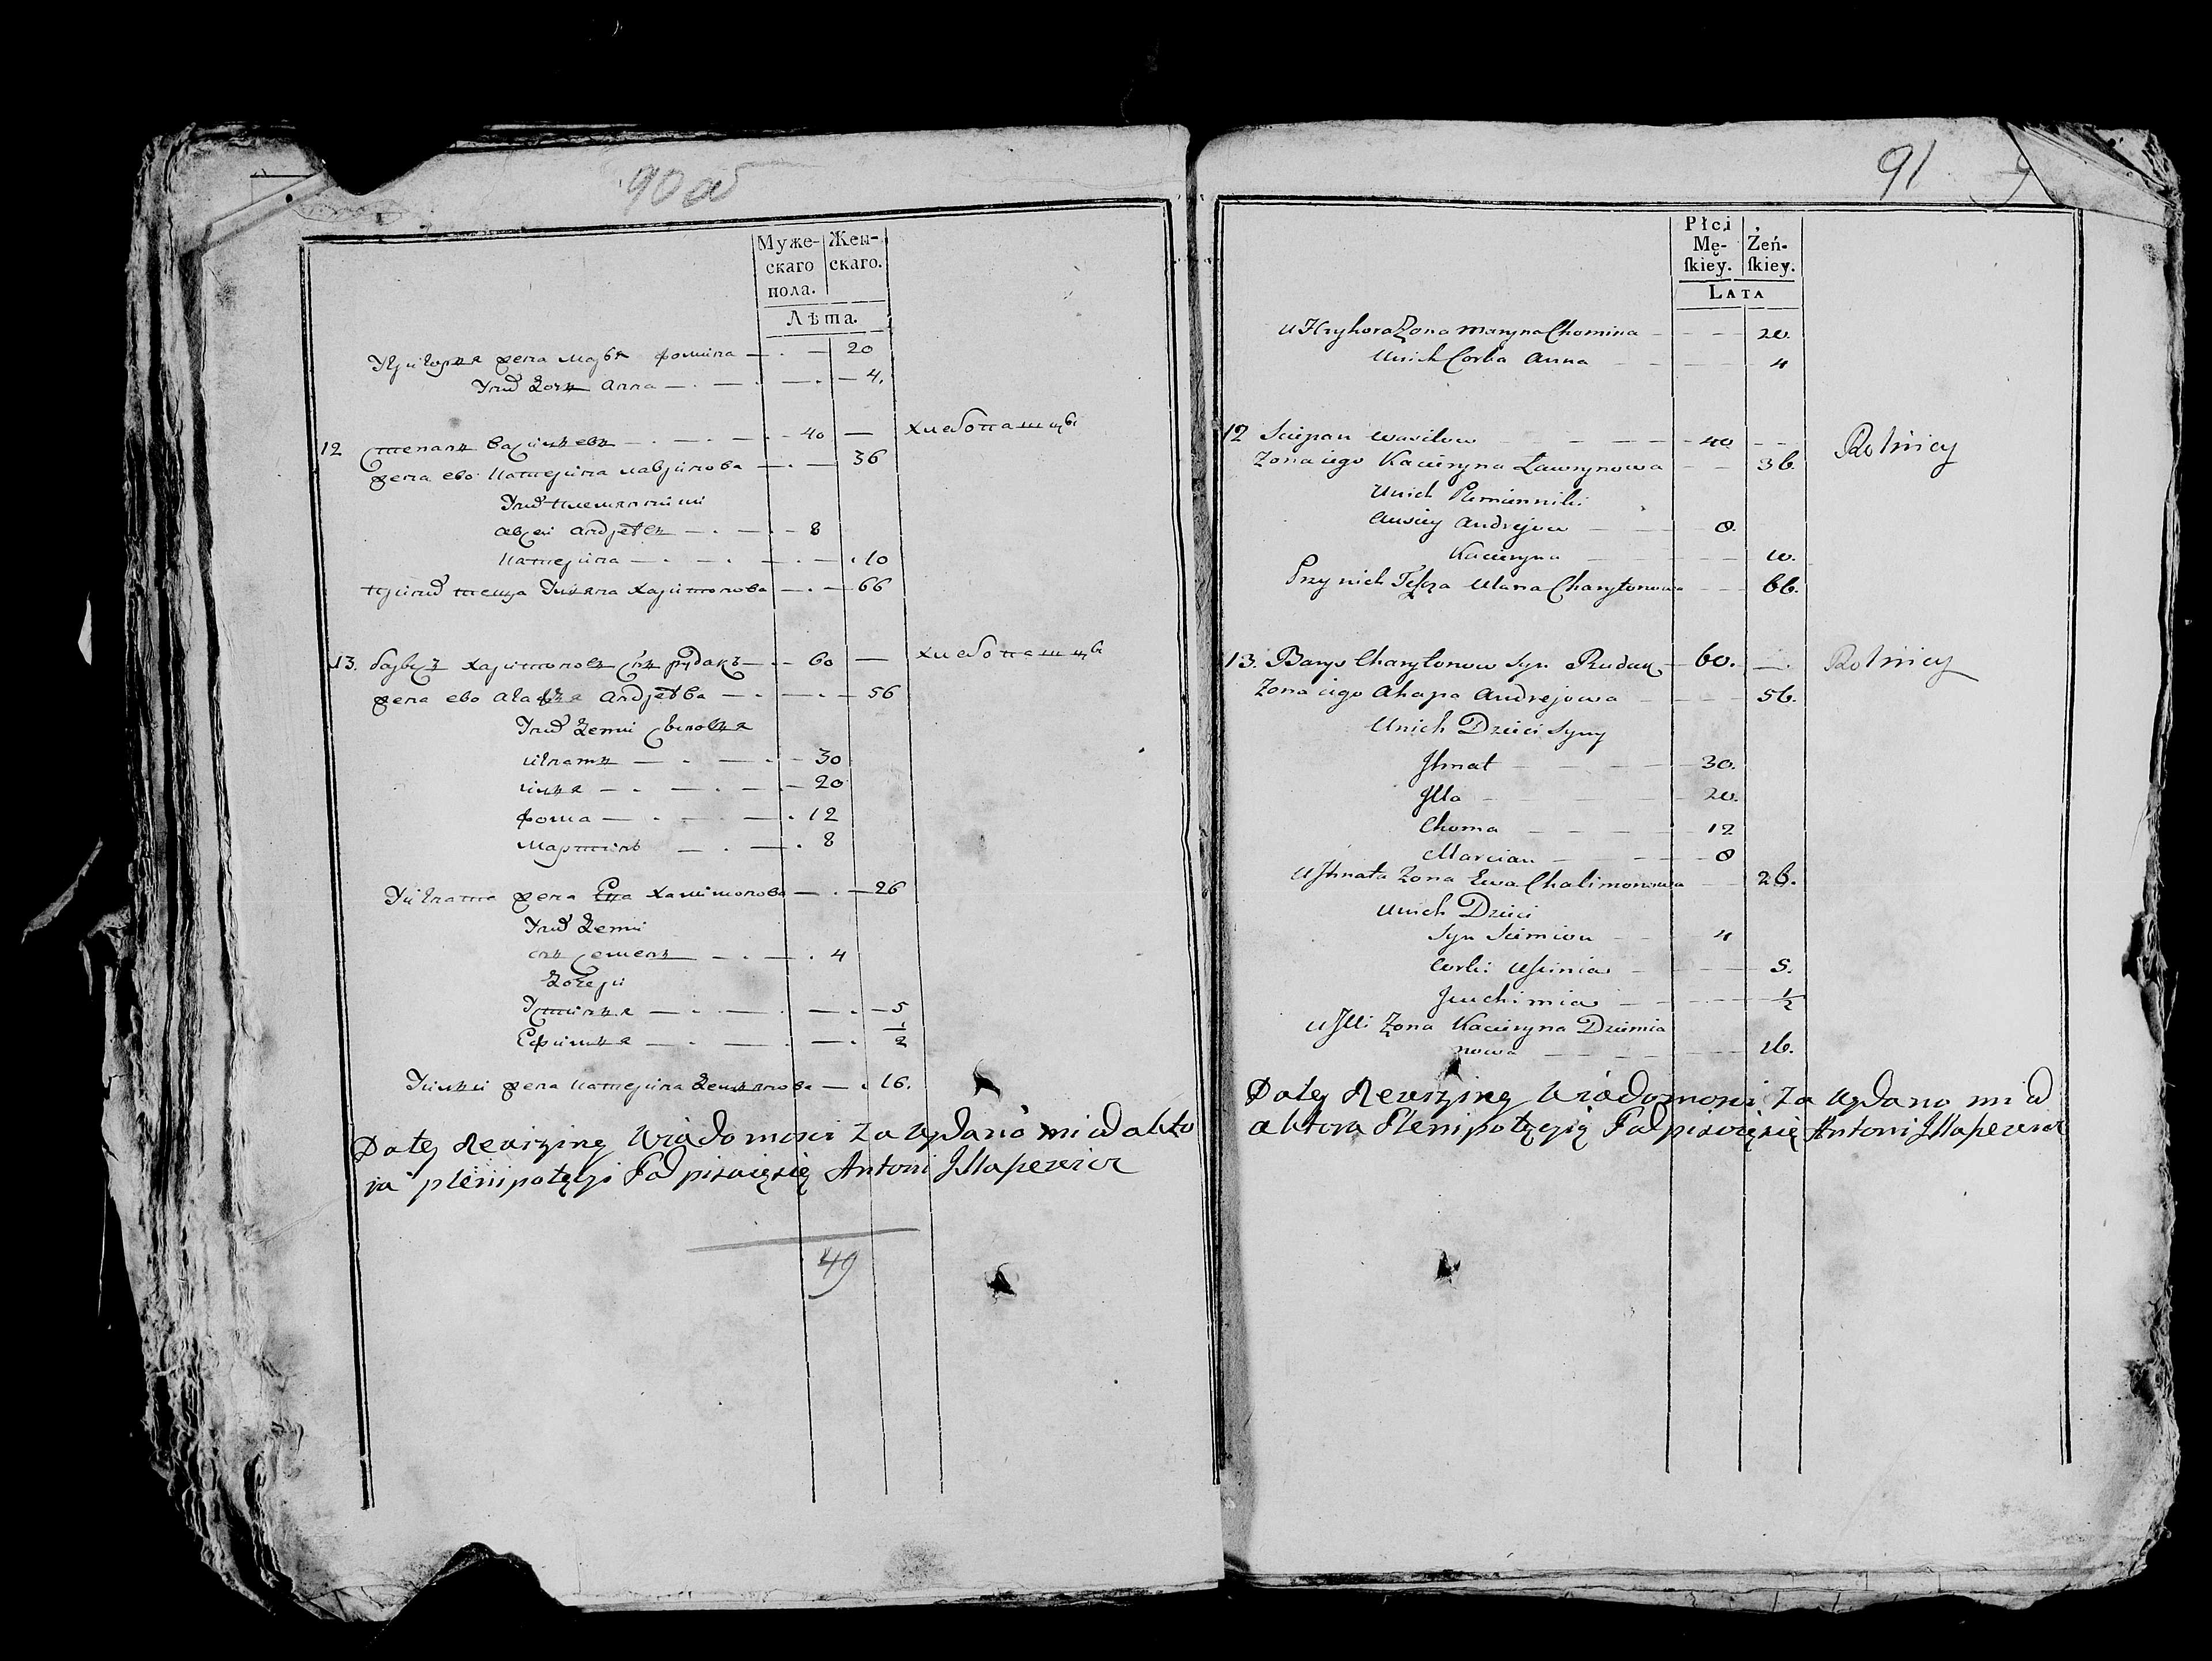 90 об
Муже- Жен-
скаго скаго.
пола.
Лѣта.
Угригорья жена марья фомина — 20
Униͯ дочь анна — 4.
12 степанъ васильевъ — 40 — хлебопашцы
жена ево катерина лавринова — 36
Униͯ племянники
авсей андреевъ — 8
катерина — 10
приниͯ теща Ульяна харитонова — 66
13. борысъ харитоновъ сынъ рудакъ — 60 — хлебопашцы
жена ево агафья андреева — 56
Униͯ дети сыновья
игнатъ — 30
илья — 20
фома — 12
мартинъ — 8
Уигната жена Ева халимонова — 26
Униͯ дети
сынъ семенъ — 4
дочери
Устинья — 5
Ефимья — 1/2
Уильи жена катерина демьянова — 16.
Do tey Rewizyiney Wiadomosci za wydano mi od akto
ra plenipotęcyi Podpisuię się Antoni
49
91
Płci
Mę- Żeń-
skiey. skiey.
LATA
U Hryhora Zona Maryna Chomina — 20.
Unich Corka Anna — 4
12 Sciepan Wasilow — 40 — Rolnicy
Zona iego Kacieryna Ławrynowa — 36.
Unich Plemienniki
Awsiey Andrejow — 8.
Kacieryna — 10.
Przy nich Teszcza Ulana Charytonowa — 66.
13. Barys Charytonow Syn Rudak — 60. — Rolnicy
Zona iego Ahapa Andrejowa — 56.
Unich Dzieci Syny
Jhnat — 30.
Jlla — 20.
Choma — 12
Marcian — 8
U Jhnata Zona Ewa Chalimonowa — 26.
Unich Dzieci
Syn Siemion — 4
Corki Uscinia — 5.
Jeuchimia — 1/2
U Jlli Zona Kacieryna Dziemia
nowa — 16.
Do tey Rewizyiney Wiadomosci za wydano mi od
aktora Plenipotęcyią Podpisuię się Antoni